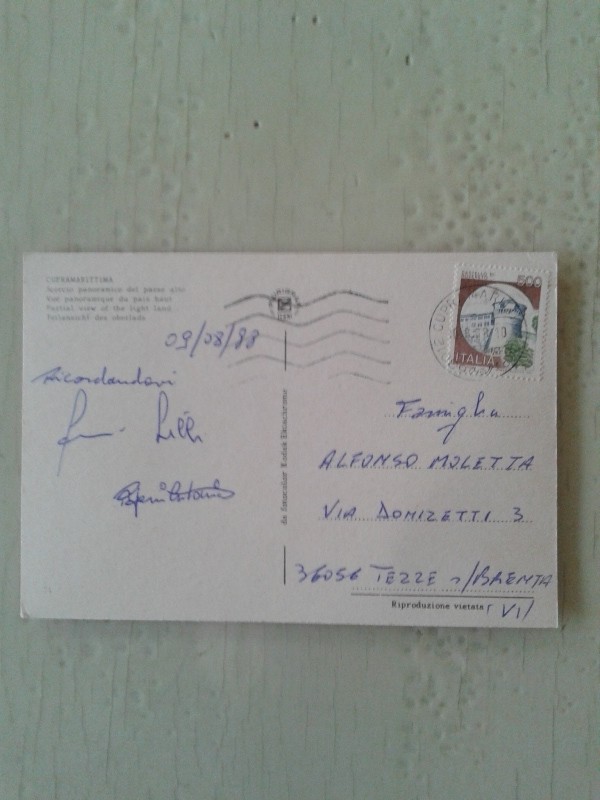 CUPRAMARITTIMA
Scorcio panoramico del paese alto
Vue panoramique du pais haut
Partial view of the hight land
500
ITALIA
09/08/88
Ricordandovi
Famiglia
ALFONSO MOLETTA
VIA DONIZETTI 3
36056 TEZZE s/BRENTA
(VI)
da fotocolor Kodak Ektachrome
Riproduzione vietata